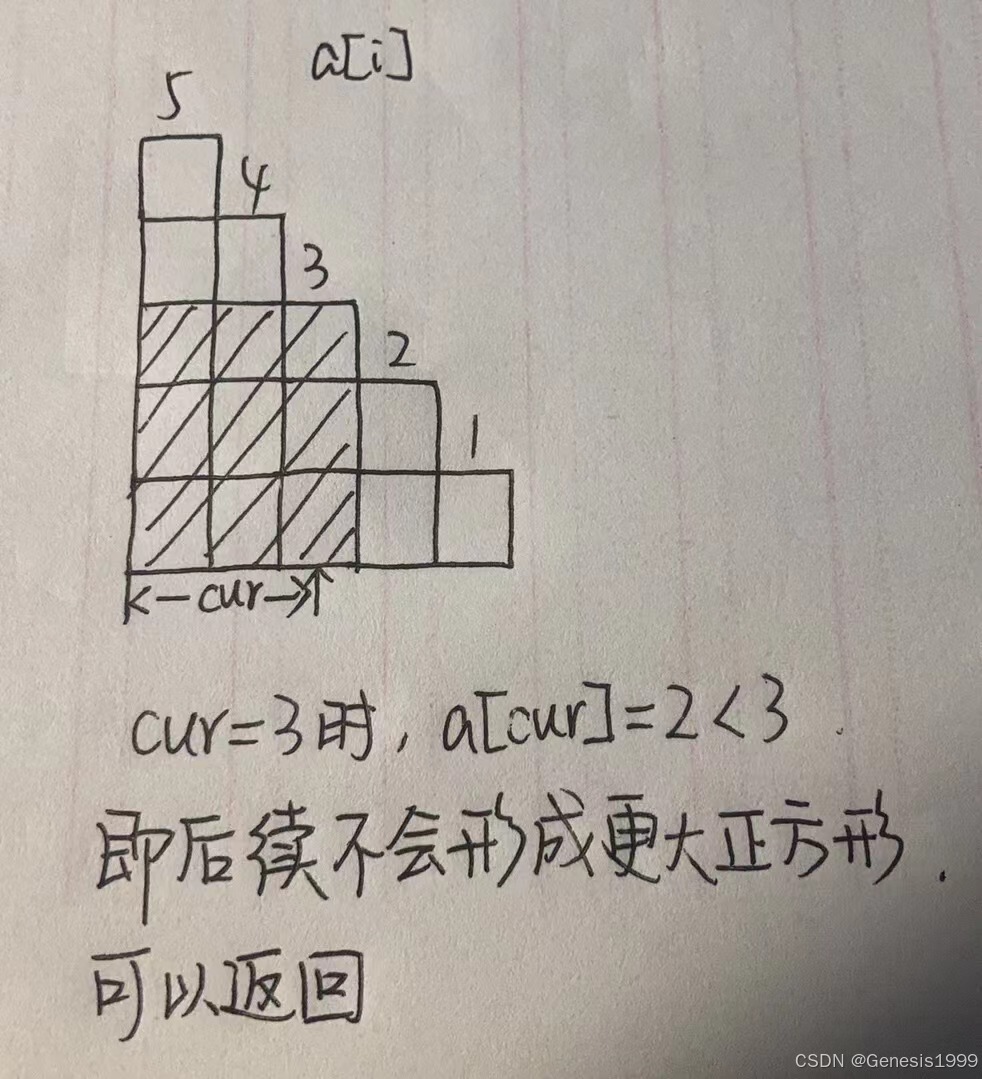 a[i]
5
4
3
2
1
K-cur->↑
cur=3时, a[cur]=2<3.
即后续不会形成更大正方形.
可以返回
CSDN @Genesis1999